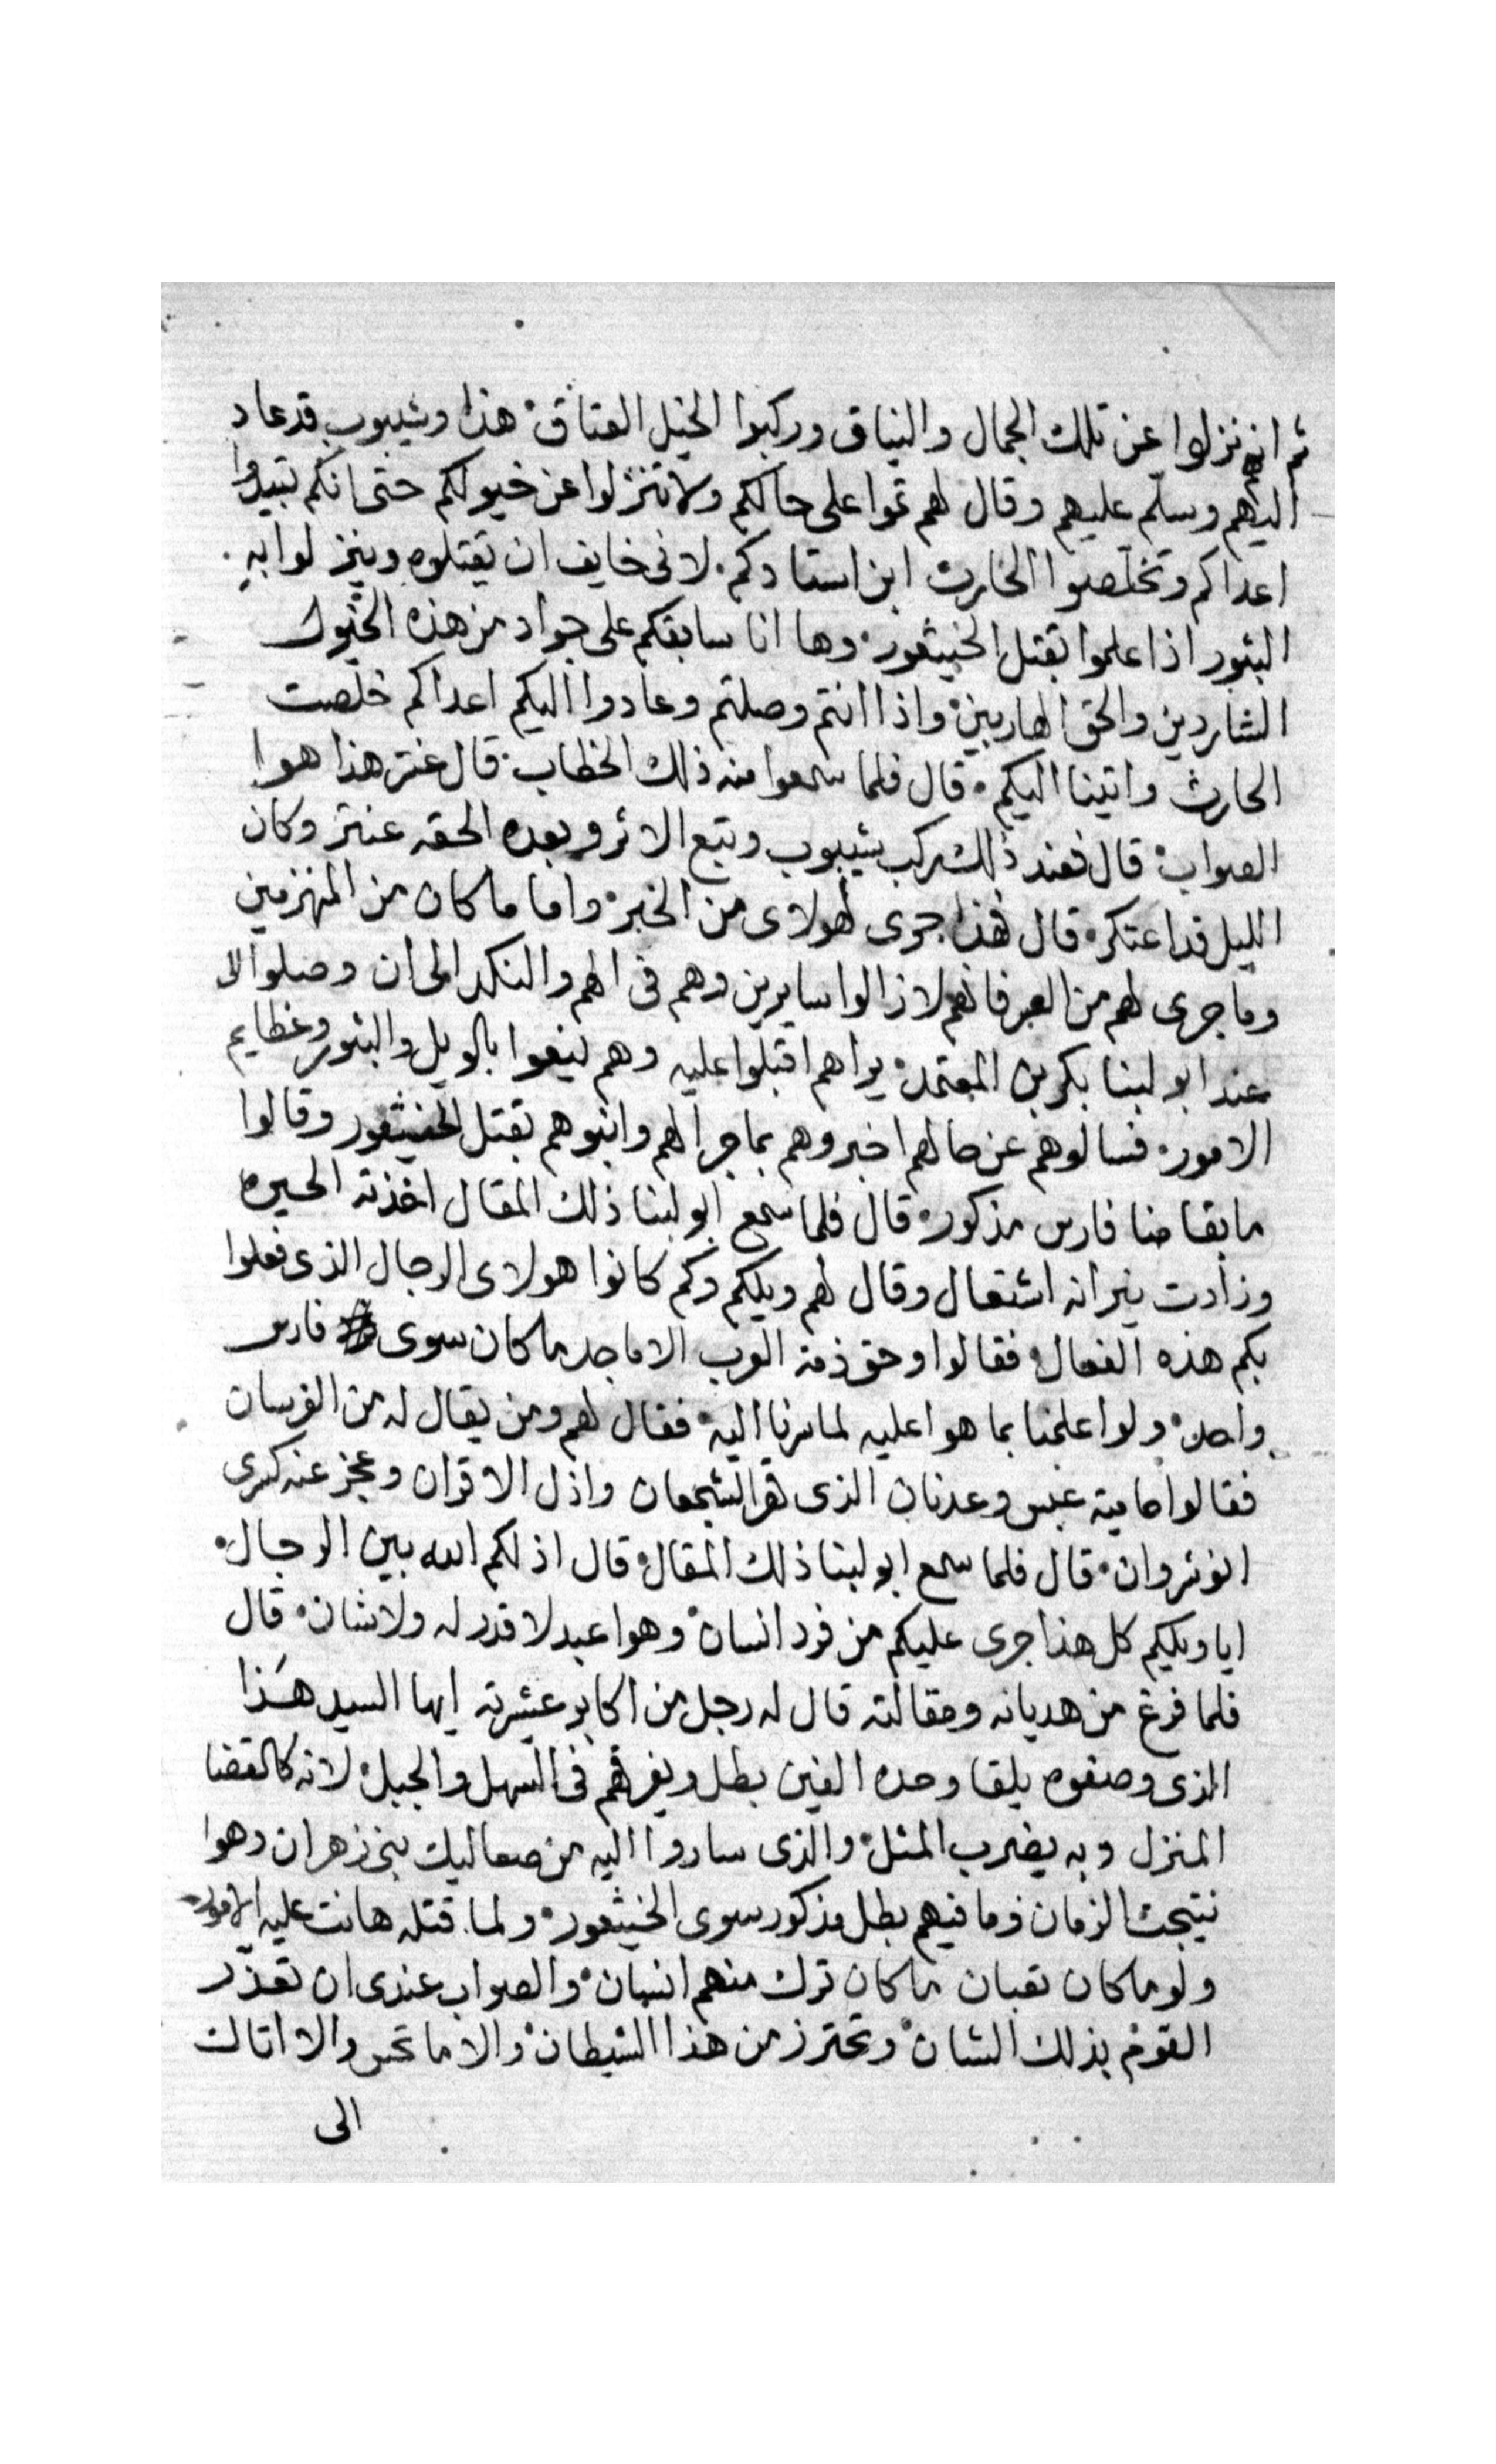 ثم انهم نزلوا عن تلك الجمال والنياق وركبوا الخيل العتاق هذا وشيبوب قد عاد
اليهم وسلم عليهم وقال لهم تموا على حالكم ولا تنزلوا عن خيولكم حتى انكم تبيدوا
اعداكم وتخلصوا الحارث ابن استادكم لاني خايف ان يقتلوه وينزلوا به
البثور اذا علموا بقتل الخيثعور وها انا سابقكم على جواد من هذه الخيول
الشاردين والحق الهاربين واذا انتم وصلتم وعادوا اليكم اعداكم خلصت
الحارث واتينا اليكم قال فلما سمعوا منه ذلك الخطاب قال عنتر هذا هوا
الصواب قال فعند ذلك ركب شيبوب وتبع الاثر وبعده الحقه عنتر وكان
الليل قد اعتكر قال فهذا جرى لهولاى من الخبر واما ما كان من المنهزمين
وما جرى لهم من العبر فانهم لا زالوا سايرين وهم في الهم والنكد الى ان وصلوا الا
عند ابو لبنا بكر بن المعتمد يراهم اقبلوا عليه وهم ينعوا بالويل والبثور وعظايم
الامور فسالوهم عن حالهم اخبروهم بما جرا لهم وانبوهم بقتل الخيثعور وقالوا
ما بقا منا فارس مذكور قال فلما سمع ابو لبنا ذلك المقال اخذته الحيره
وزادت نيرانه اشتعال وقال لهم ويلكم وكم كانوا هولاى الرجال الذى فعلوا
بكم هذه الفعال فقالوا وحق ذمة العرب الاماجد ما كان سوى فارس
واحد ولوا علمنا بما هوا عليه لما سرنا اليه فقال لهم ومن يقال له من الفرسان
فقالوا حامية عبس وعدنان الذى قهر الشجعان واذل الاقران وعجز عنه كسرى
انوشروان قال فلما سمع ابو لبنا ذلك المقال قال اذلكم الله بين الرجال
ايا ويلكيم كل هذا جرى عليكم من فرد انسان وهوا عبد لا قدر له ولا شان قال
فلما فرغ من هديانه ومقالته قال له رجل من اكابر عشيرته ايها السيد هذا
الذى وصفوه يلقا وحده الفين بطل ويفرقهم في السهل والجبل لانه كالقضا
المنزل وبه يضرب المثل والذى ساروا اليه من صعاليك بني زهران وهوا
نتيجت الزمان وما فيهم بطل مذكور سوى الخيثعور ولما قتله هانت عليه الامور
ولو ما كان تعبان ما كان ترك منهم انسان والصواب عندى ان تعذر
القوم بذلك الشان وتحترز من هذا الشيطان والا ما تحس والا اتاك
الى